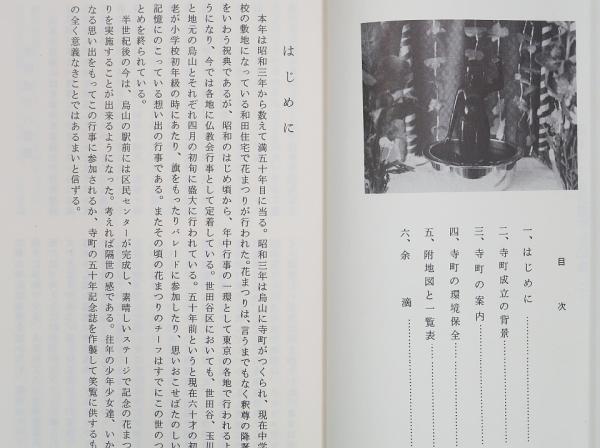 目次
一、はじめに
二、寺町成立の背景
三、寺町の案内
四、寺町の環境保全
五、附地図と一覧表
六、余滴
はじめに
本年は昭和三年から数えて満五十年目に当る。昭和三年は烏山に寺町がつくられ、現在中学
校の敷地になっている和田住宅で花まつりが行われた。花まつりは、言うまでもなく釈尊の降誕
をいわう祝典であるが、昭和のはじめ頃から、年中行事の一環として東京の各地で行われるよ
うになり、今では各地に仏教会行事として定着している。世田谷区においても、世田谷、玉川
と地元の烏山とそれぞれ四月の初旬に盛大に行われている。五十年前というと現在六十才の初
老が小学校初年級の時にあたり、旗をもったりパレードに参加したり、思いおこせばたのしい
記憶にのこっている想い出の行事である。またその頃の花まつりのチーフはすでにこの世のつ
とめを終られている。
半世紀後の今は、烏山の駅前には区民センターが完成し、素晴しいステージで記念の花まつ
りを実施することが出来るようになった。考えれば隔世の感である。往年の少年少女達、いか
なる思い出をもってこの行事に参加されるか、寺町の五十年記念誌を作製して笑覧に供するも
の全く意義なきことではあるまいと信ずる。